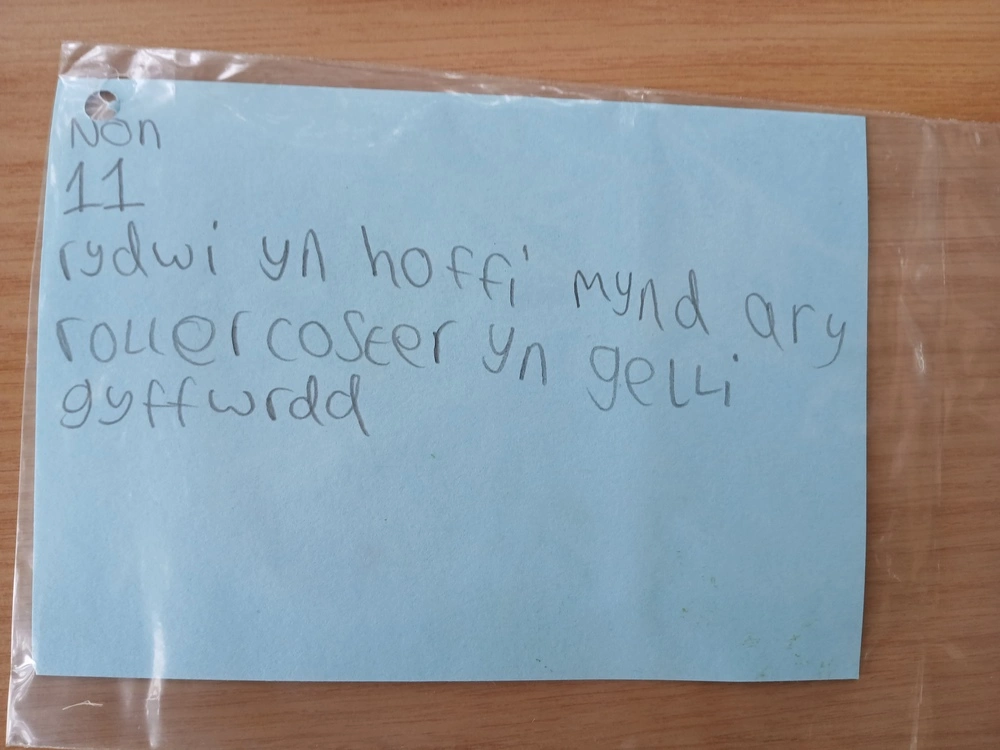 Non
11
rydwi yn hoffi mynd ary
rollercoster yn gelli
gyffwrdd